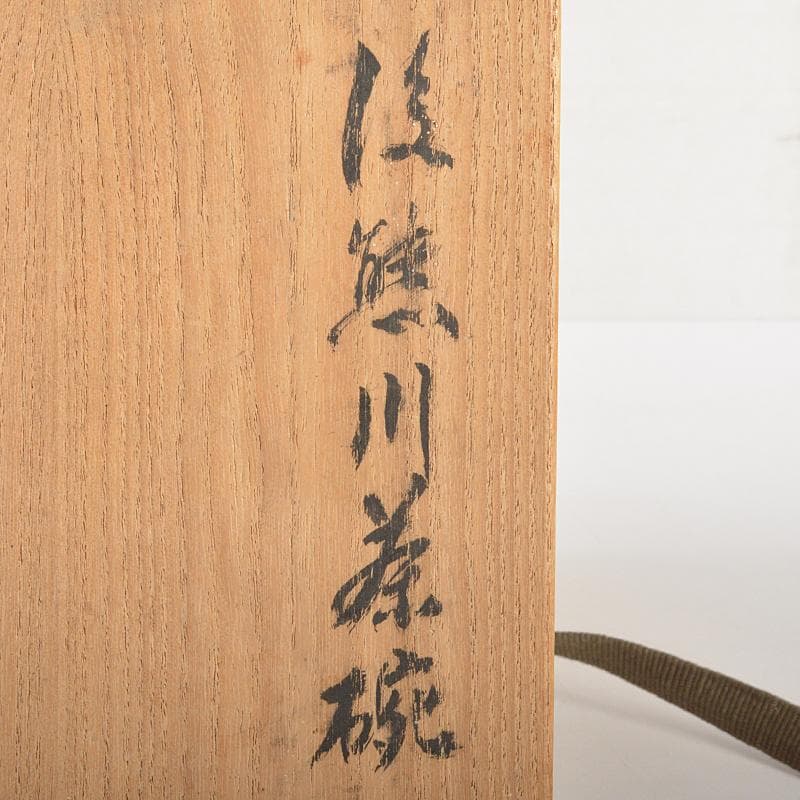 後熊川茶碗